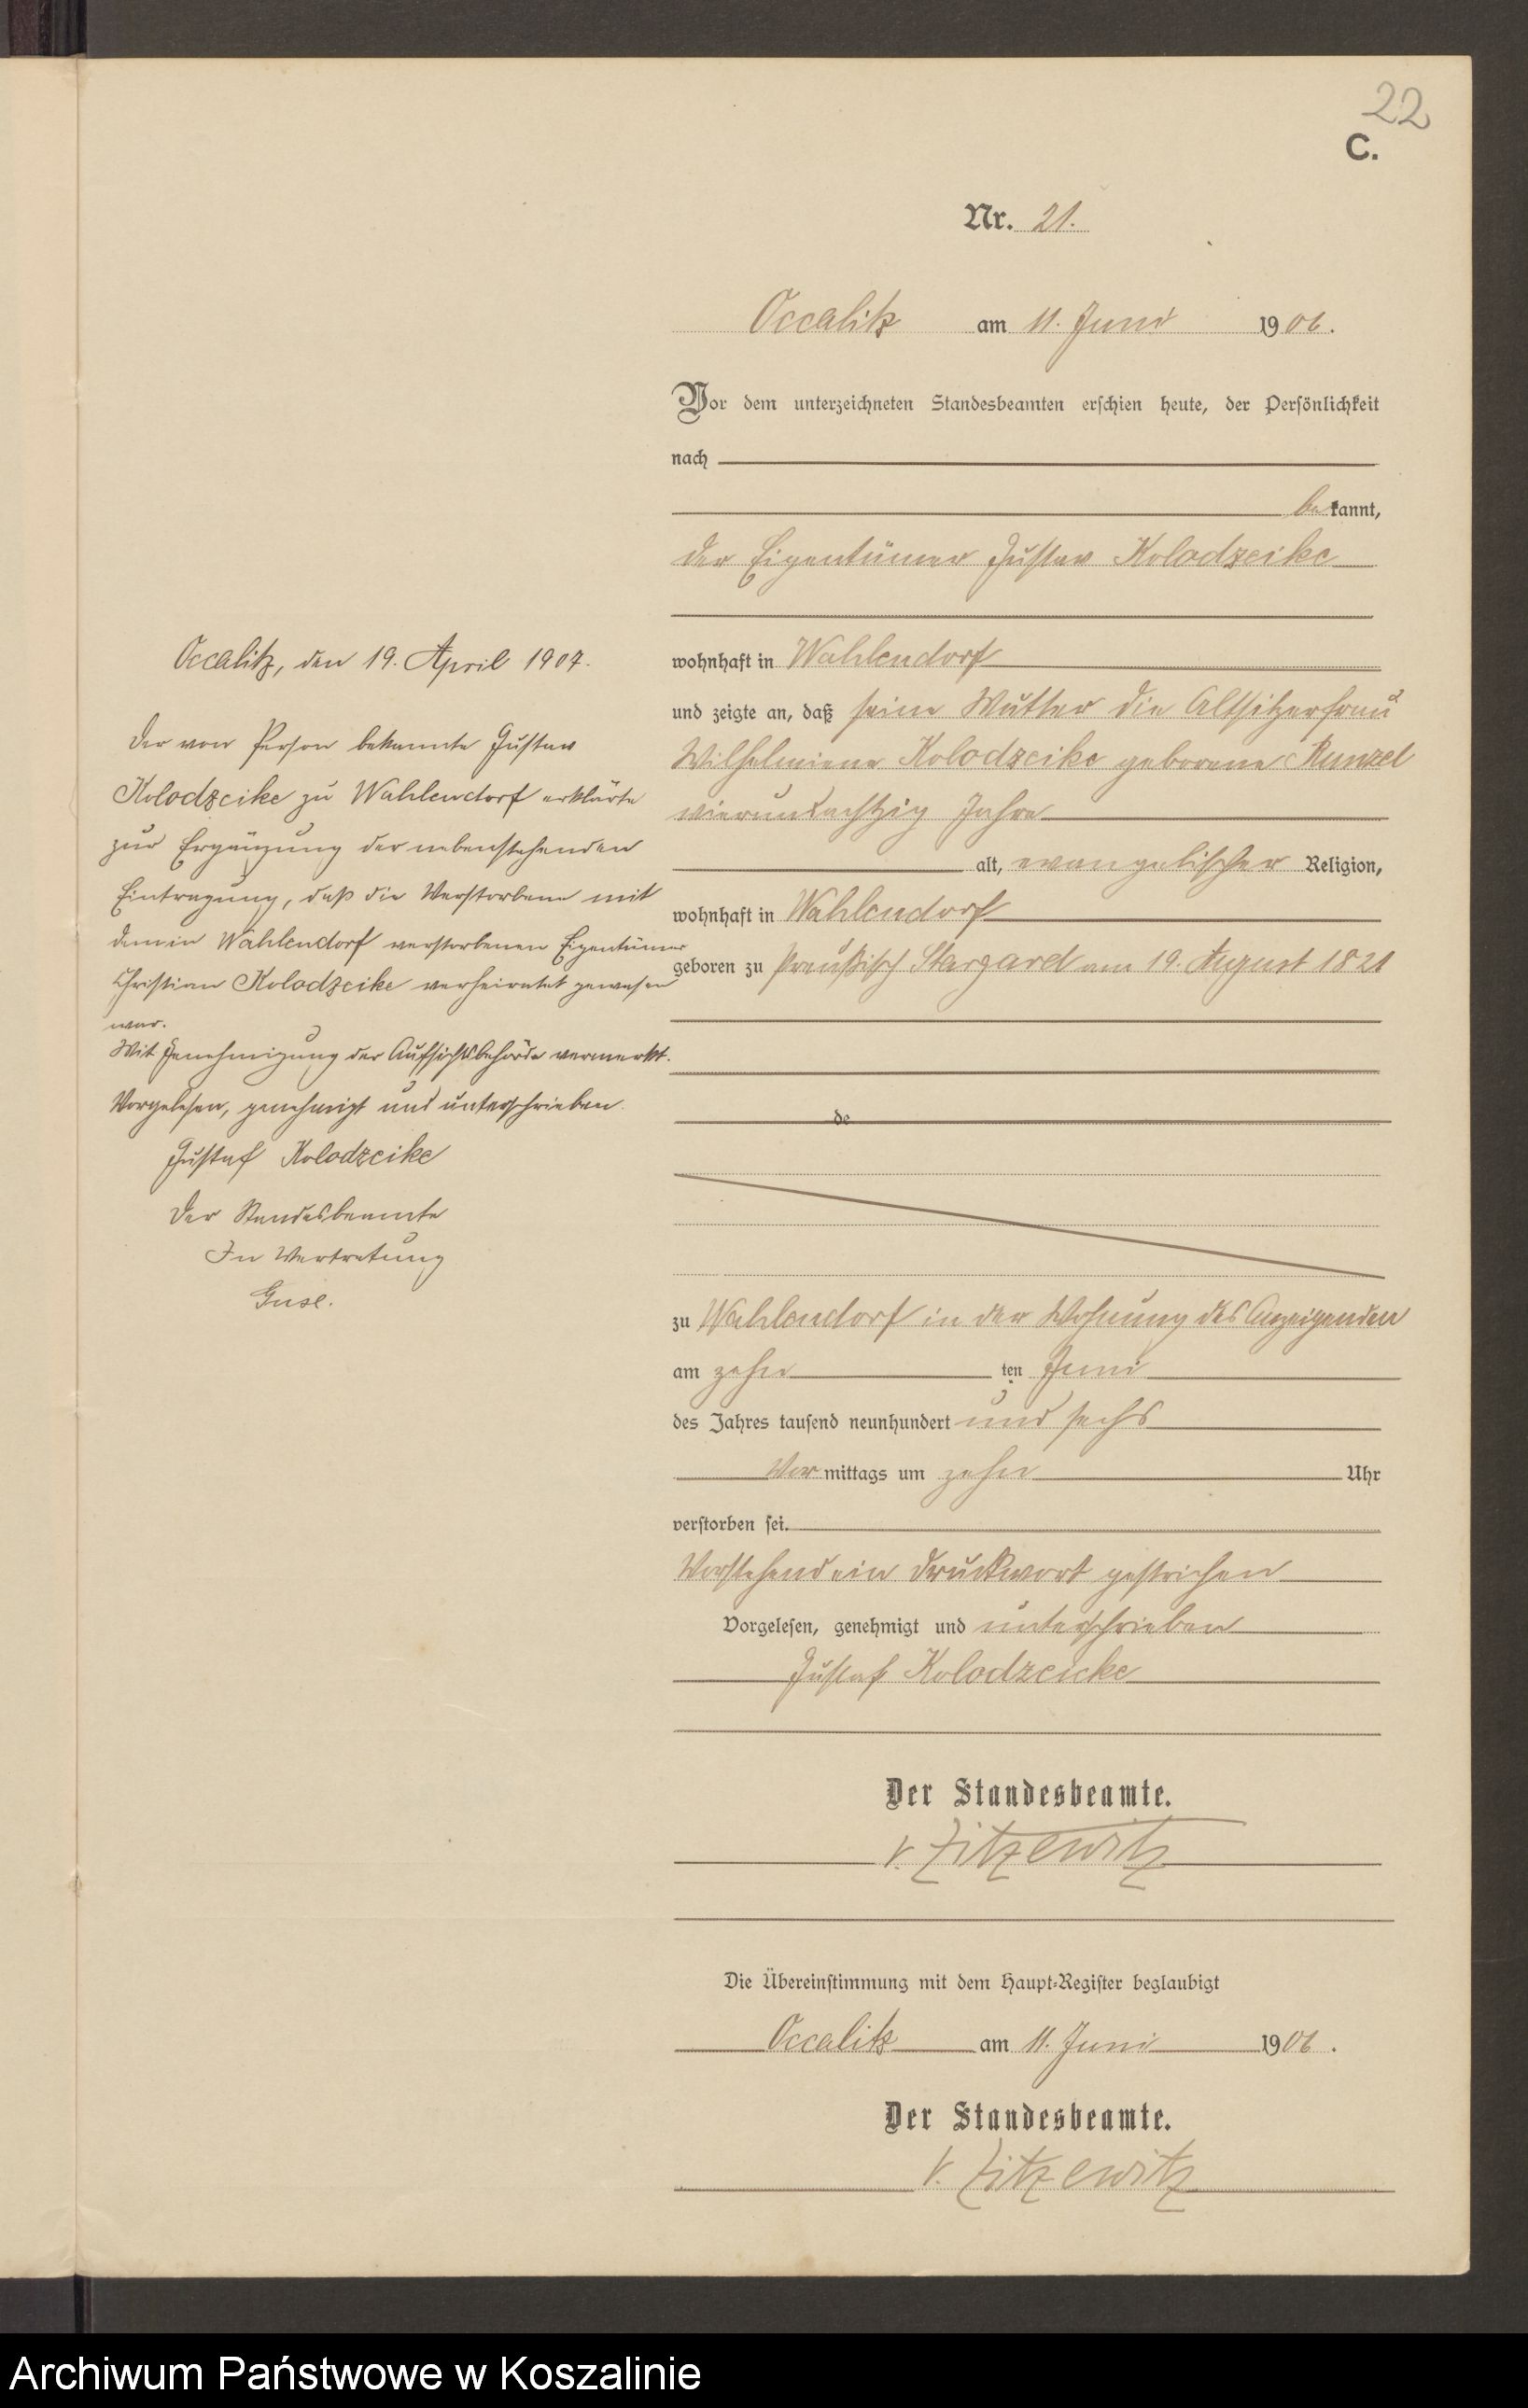 22
C.
Nr. 21.
Occalitz am 11. Juni 1906.
Vor dem unterzeichneten Standesbeamten erschien heute, der Persönlichkeit
nach
bekannt,
der Eigentümer Gustav Kolodzeike
wohnhaft in Wahlendorf
und zeigte an, daß seine Mutter die Altsitzerfrau
Wilhelmiene Kolodzeike geborene Runzel
vierundachtzig Jahre
alt, evangelischer Religion,
wohnhaft in Wahlendorf
geboren zu Preußisch Stargard am 19. August 1821
de
zu Wahlendorf in der Wohnung des Anzeigenden
am zehn ten Juni
des Jahres tausend neunhundert und sechs
Vor mittags um zehn Uhr
verstorben sei.
Vorstehend ein Druckwort gestrichen
Vorgelesen, genehmigt und unterschrieben
Gustaf Kolodzeicke
Der Standesbeamte.
v. Zitzewitz
Die Übereinstimmung mit dem Haupt-Register beglaubigt
Occalitz am 11. Juni 1906.
Der Standesbeamte.
v. Zitzewitz
Occalitz, den 19. April 1907.
Der von Person bekannte Gustav
Kolodzeike zu Wahlendorf erklärte
zur Ergänzung der nebenstehenden
Eintragung, daß die Verstorbene mit
dem in Wahlendorf verstorbenen Eigentümer
Christian Kolodzeike verheiratet gewesen
war.
Mit Genehmigung der Aufsichtsbehörde vermerkt.
Vorgelesen, genehmigt und unterschrieben.
Gustaf Kolodzeike
Der Standesbeamte
In Vertretung
Guse.
Archiwum Państwowe w Koszalinie